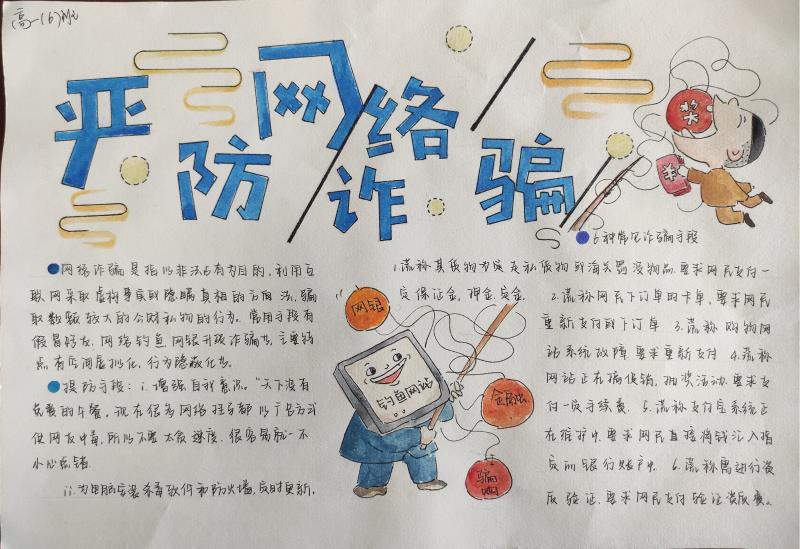 高一(6)班
严防网络诈骗
奖
¥
●网络诈骗是指以非法占有为目的，利用互
联网采取虚构事实或隐瞒真相的方法，骗
取数额较大的公财私物的行为。常用手段有
假冒好友，网络钓鱼，网银升级诈骗等，主要特
点，有空间虚拟化、行为隐蔽化等。
●提防手段：i.增强自我意识。“天下没有
免费的午餐，现在很多网络
网友中毒，所以不要太贪
小心
ii.为电脑安装杀毒软件和防火墙，定时更新。
网银
钓鱼网站
金融
骗
●6种常见诈骗手段
1.谎称其货物为定友私货物或海关罚没物品，要求网民支付一
定保证金，押金，定金
2.谎称网民下订单时卡单，要求网民
重新支付或下订单 3.谎称购物网
站系统故障要求重新支付 4.谎称
网站正在搞促销，抽奖活动，要求支
付一定手续费。5.谎称支付宝系统正
在维护中，要求网民直接将钱汇入指
定的银行账户中。6.谎称需进行资
质验证，要求网民支付验证资质费。